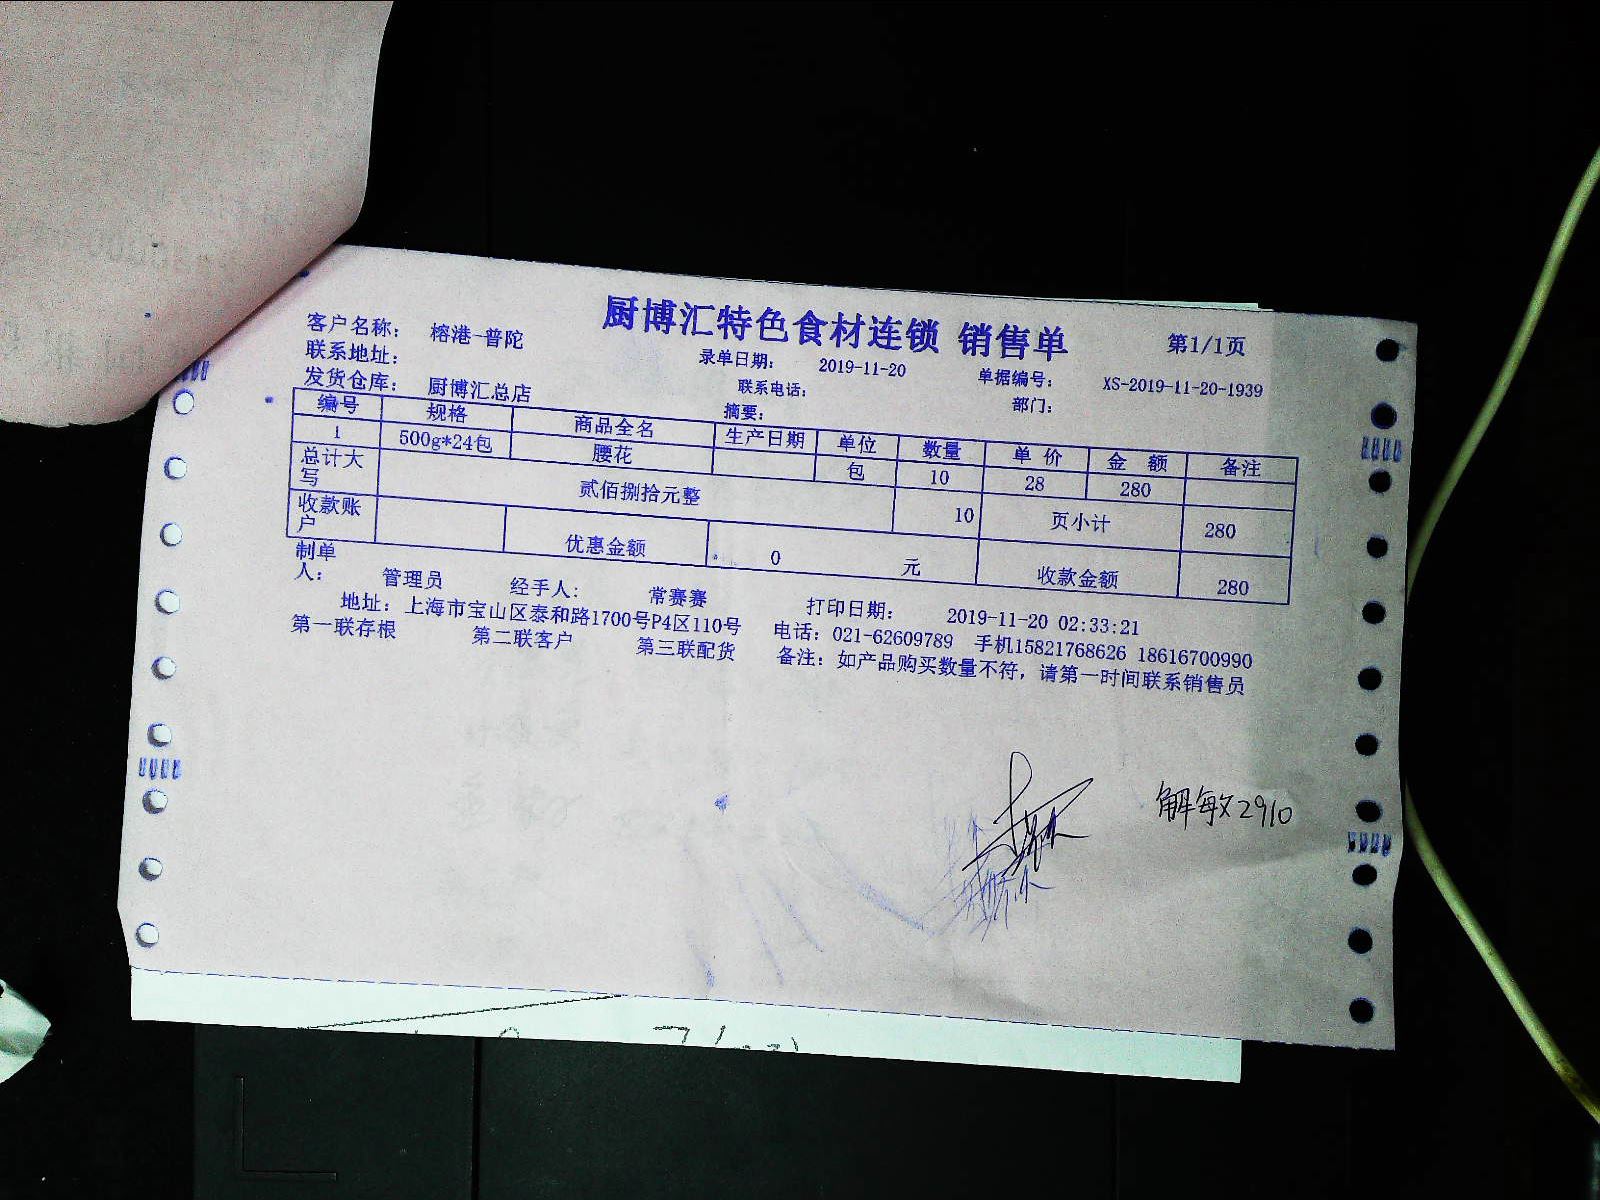 厨博汇特色食材连锁 销售单
第1/1页
客户名称: 榕港-普陀
录单日期: 2019-11-20
单据编号: XS-2019-11-20-1939
联系地址:
联系电话:
部门:
发货仓库: 厨博汇总店
摘要:
编号 规格 商品全名 生产日期 单位 数量 单 价 金 额 备注
1 500g*24包 腰花 包 10 28 280
总计大写 贰佰捌拾元整 10 页小计 280
收款账户 优惠金额 0 元 收款金额 280
制单人: 管理员 经手人: 常赛赛 打印日期: 2019-11-20 02:33:21
地址: 上海市宝山区泰和路1700号P4区110号 电话: 021-62609789 手机15821768626 18616700990
第一联存根 第二联客户 第三联配货 备注: 如产品购买数量不符, 请第一时间联系销售员
解敏2910